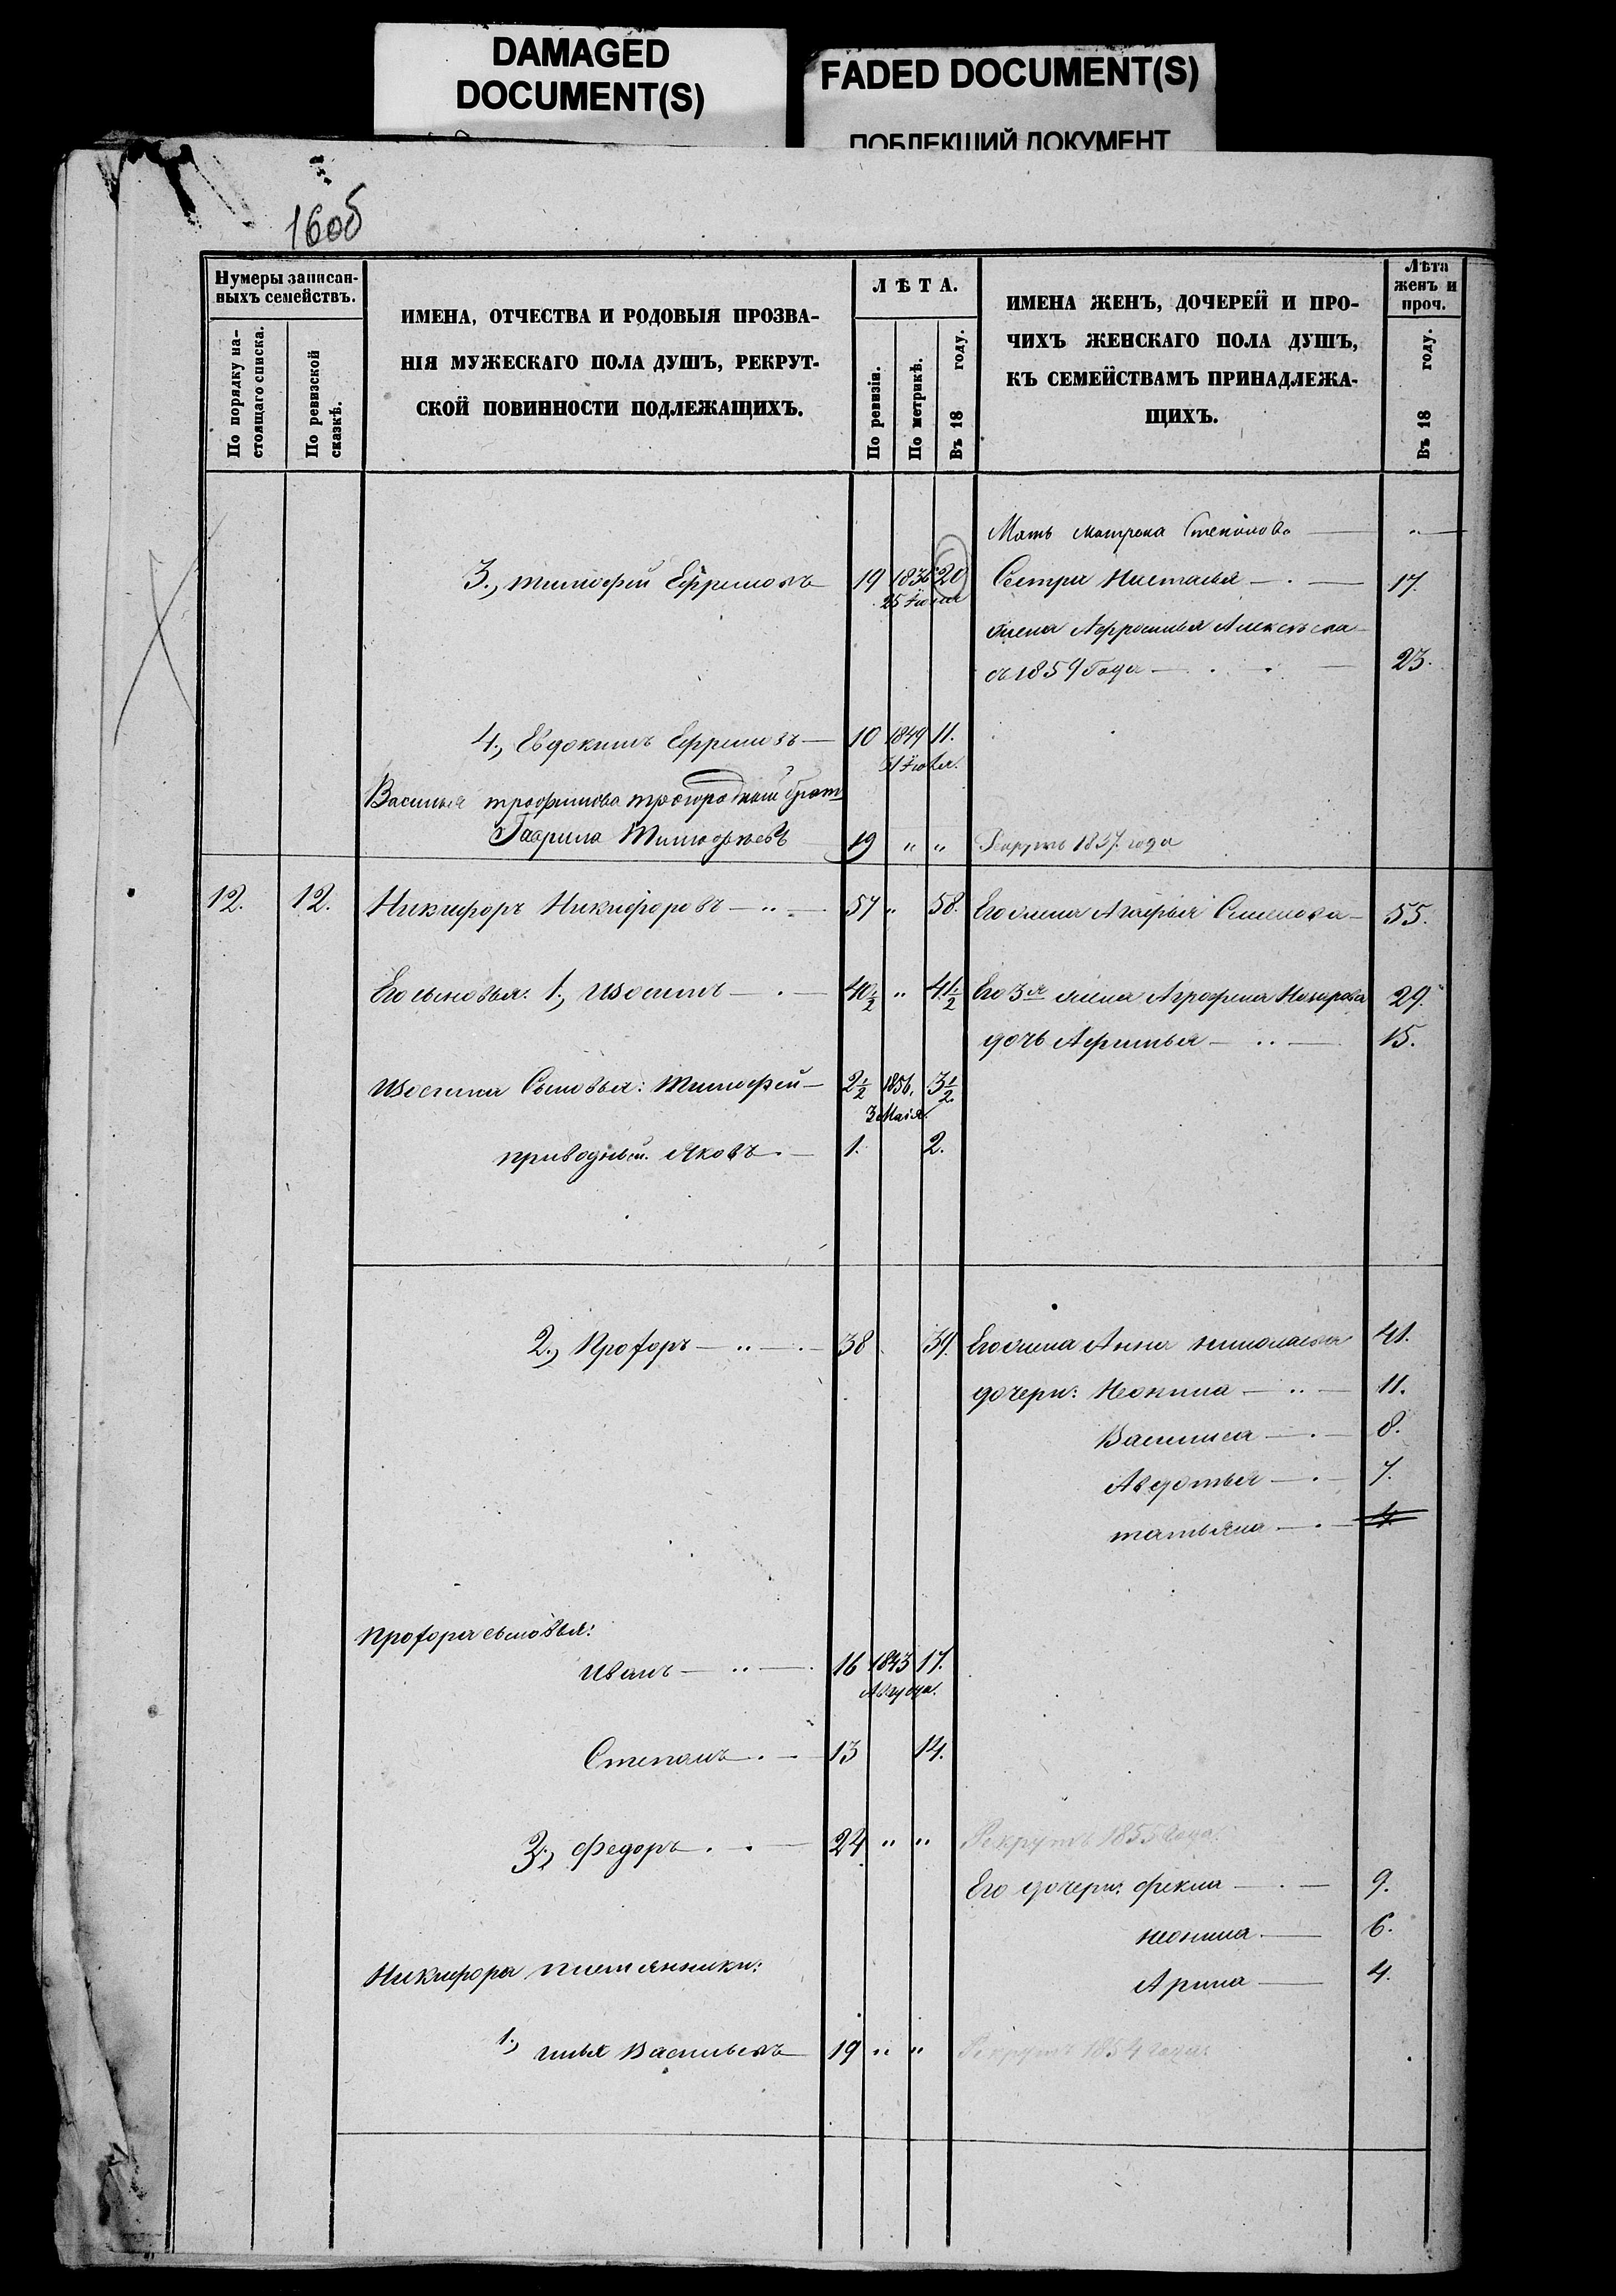 DAMAGED
DOCUMENT(S)
FADED DOCUMENT(S)
ПОБЛЕКШИЙ ДОКУМЕНТ
160об
Нумеры записан-
ныхъ семействъ.
По порядку на-
стоящаго списка.
По ревизской
сказкѣ.
ИМЕНА, ОТЧЕСТВА И РОДОВЫЯ ПРОЗВА-
НІЯ МУЖЕСКАГО ПОЛА ДУШЪ, РЕКРУТ-
СКОЙ ПОВИННОСТИ ПОДЛЕЖАЩИХЪ.
ЛѢТА.
По ревизіи.
По метрикѣ.
Въ 18 году.
ИМЕНА ЖЕНЪ, ДОЧЕРЕЙ И ПРО-
ЧИХЪ ЖЕНСКАГО ПОЛА ДУШЪ,
КЪ СЕМЕЙСТВАМЪ ПРИНАДЛЕЖА-
ЩИХЪ.
Лѣта
женъ и
проч.
Въ 18 году.
Мать Матрена Степанова — „ —
3., Тимофей Ефремовъ 19 1836 20 Сестра Настасья — . — 17.
25 Іюня
жена Афросинья Алексѣева
съ 1859 Года — . . — 23.
4., Евдокимъ Ефремовъ — 10 1849 11.
31 Іюля.
Василья Трофимова троюродный братъ
Гаврила Тимофѣевъ 19 „ „ Рекрутъ 1857 года
12. 12. Никифоръ Никифоровъ — .. — 57 „ 58. Его жена Агафья Семенова — 55.
Его сыновья: 1., Изосимъ — . — 40 1/2 „ 41 1/2 Его 3я жена Аграфена Назарова 29.
дочь Афимья — .. — 15.
Изосима Сыновья: Тимофей — 2 1/2 1856. 3 1/2.
3 Маія.
приводный. Яковъ . — 1. 2.
2., Проѳоръ — .. — . — 38 39. Его жена Анна Николаева 41.
дочери: Неонила — .. — 11.
Василиса — . — 8.
Авдотья — . — 7.
татьяна — . — 4.
Проѳора сыновья:
Иванъ — .. — . 16 1843 17.
Августа.
Степанъ . — 13 14.
3., Федоръ . . — 24 „ „ Рекрутъ 1855 года.
Его дочери: фекла — . — 9.
неонила . — 6.
Никифора племянники: Арина — 4.
1., илья Васильевъ 19 „ „ Рекрутъ 1854 года.